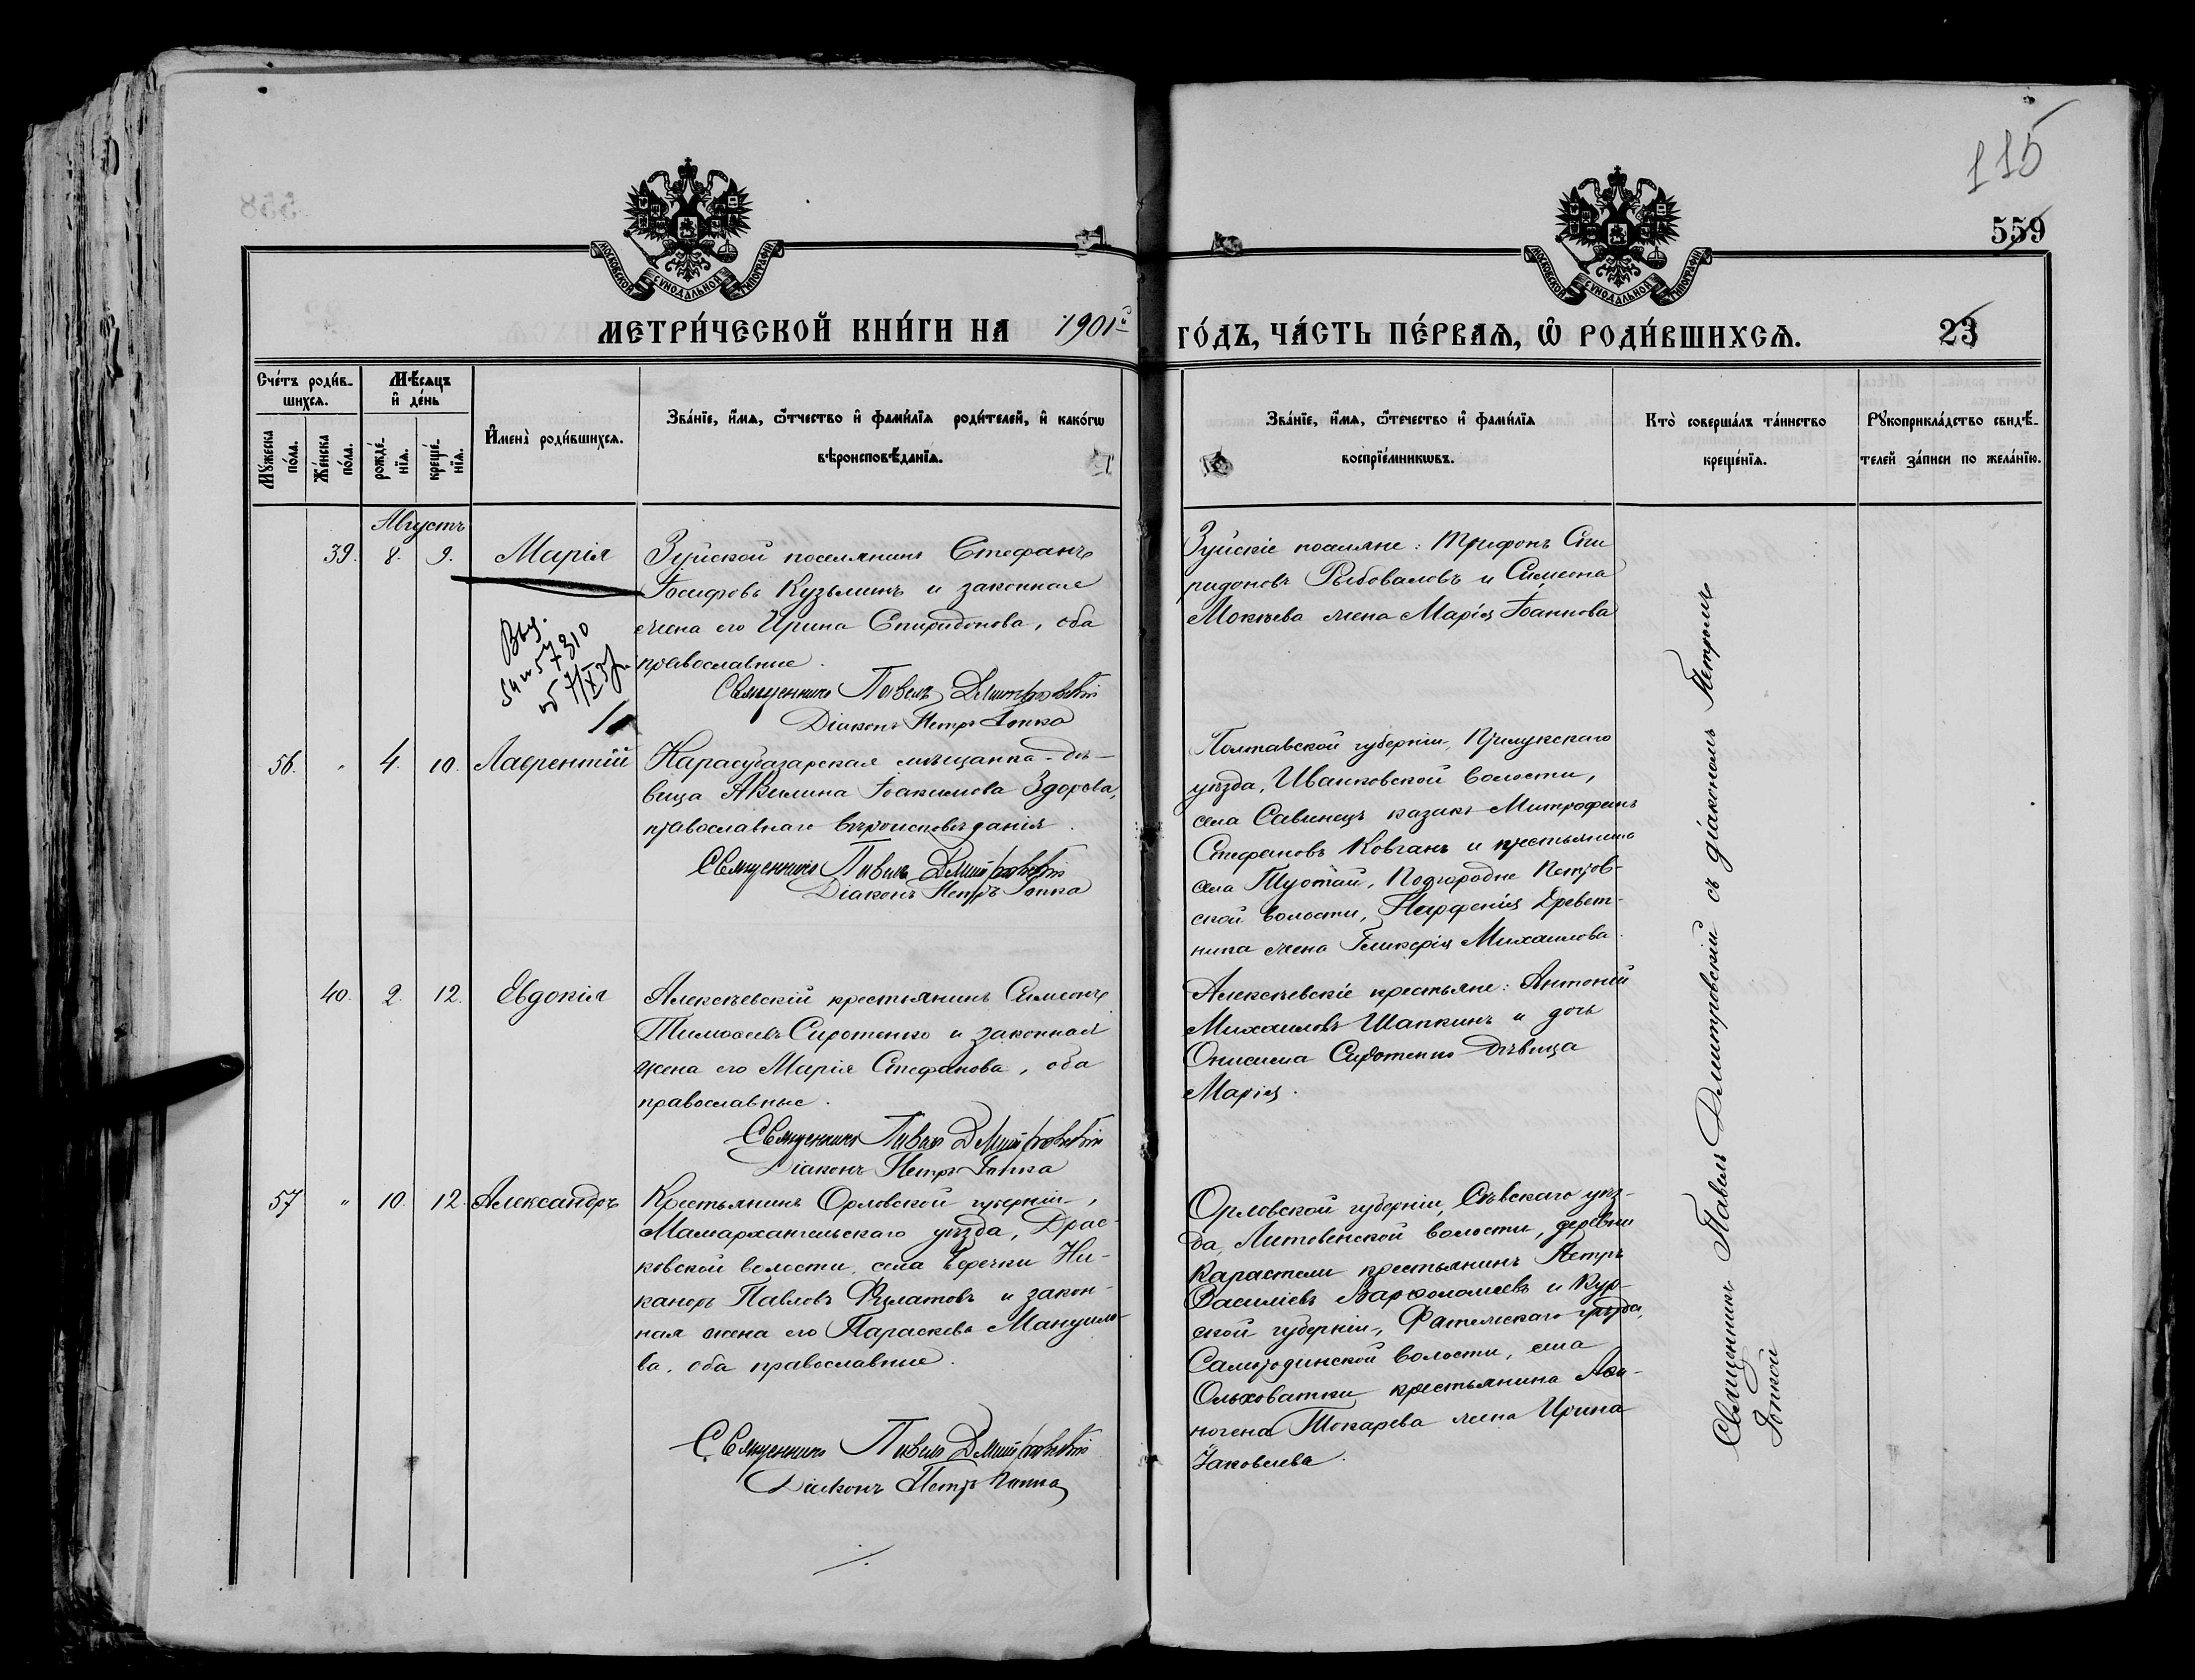 115
559
МОСКОВСКОЙ СѴНОДАЛЬНОЙ ТИПОГРАФІИ
МОСКОВСКОЙ СѴНОДАЛЬНОЙ ТИПОГРАФІИ
МЕТРИ́ЧЕСКОЙ КНИ́ГИ НА 1901й ГО́ДЪ, ЧА́СТЬ ПЕ́РВАѦ, Ѡ҆ РОДИ́ВШИХСѦ.
23
Сче́тъ роди́в-
шихсѧ.
Мꙋ́жеска
по́ла.
Же́нска
по́ла.
Мѣ́сѧцъ
и҆ де́нь
рожде́-
нїѧ.
креще́-
нїѧ.
И҆мена̀ роди́вшихсѧ.
Зва́нїе, и҆́мѧ, ѻ҆́тчество и҆ фами́лїѧ роди́телей, и҆ како́гѡ
вѣроисповѣ́данїѧ.
Зва́нїе, и҆́мѧ, ѻ҆́течество и҆ фами́лїѧ
воспрїе́мникѡвъ.
Кто̀ соверша́лъ та́инство
креще́нїѧ.
Рꙋкоприкла́дство свидѣ́-
телей за́писи по жела́нїю.
Августъ
39. 8. 9. Марія
Зуйской поселянинъ Стефанъ
Іосифовъ Кузьминъ и законная
жена его Ирина Спиридонова, оба
православные.
Священникъ Павелъ Дмитровскій
Діаконъ Петръ Гопка
Зуйскіе поселяне: Трифонъ Спи
ридоновъ Рыбоваловъ и Симеона
Мокѣева жена Марія Іоаннова
Выд.
56. " 4. 10. Лаврентій
Карасубазарская мѣщанка-дѣ-
вица Акилина Іоакимова Здорова,
православнаго вѣроисповѣданія.
Священникъ Павелъ Дмитровскій
Діаконъ Петръ Гопка
Полтавской губерніи, Прилукскаго
уѣзда, Иванковской волости,
села Савинецъ казакъ Митрофанъ
Стефановъ Ковганъ и крестьянина
села Подгородне Петров-
ской волости, Парфенія Древет-
ника жена Гликерія Михаилова.
40. 2. 12. Евдокія
Алексѣевскій крестьянинъ Симеонъ
Тимоѳеевъ Сиротенко и законная
жена его Марія Стефанова, оба
православные.
Священникъ Павелъ Дмитровскій
Діаконъ Петръ Гопка
Алексѣевскіе крестьяне: Антоній
Михаиловъ Шапкинъ и дочь
Онисима Сиротенко дѣвица
Марія.
57 " 10. 12. Александръ
Крестьянинъ Орловской губерніи,
Малоархангельскаго уѣзда, Драс-
ковской волости, села Ни-
каноръ Павловъ и закон-
ная жена его Параскева Мануило-
ва, оба православные.
Священникъ Павелъ Дмитровскій
Діаконъ Петръ Гопка
Орловской губерніи, Сѣвскаго уѣз-
да, Литовенской волости, деревни
крестьянинъ Петръ
Василіевъ Варѳоломеевъ и Кур-
ской губерніи, Фатежскаго уѣзда,
Самородинской волости, села
Ольховатки крестьянина Аѳи-
ногена Токарева жена Ирина
Іаковлева.
Священникъ Павелъ Дмитровскій съ діакономъ Петромъ
Гопкой